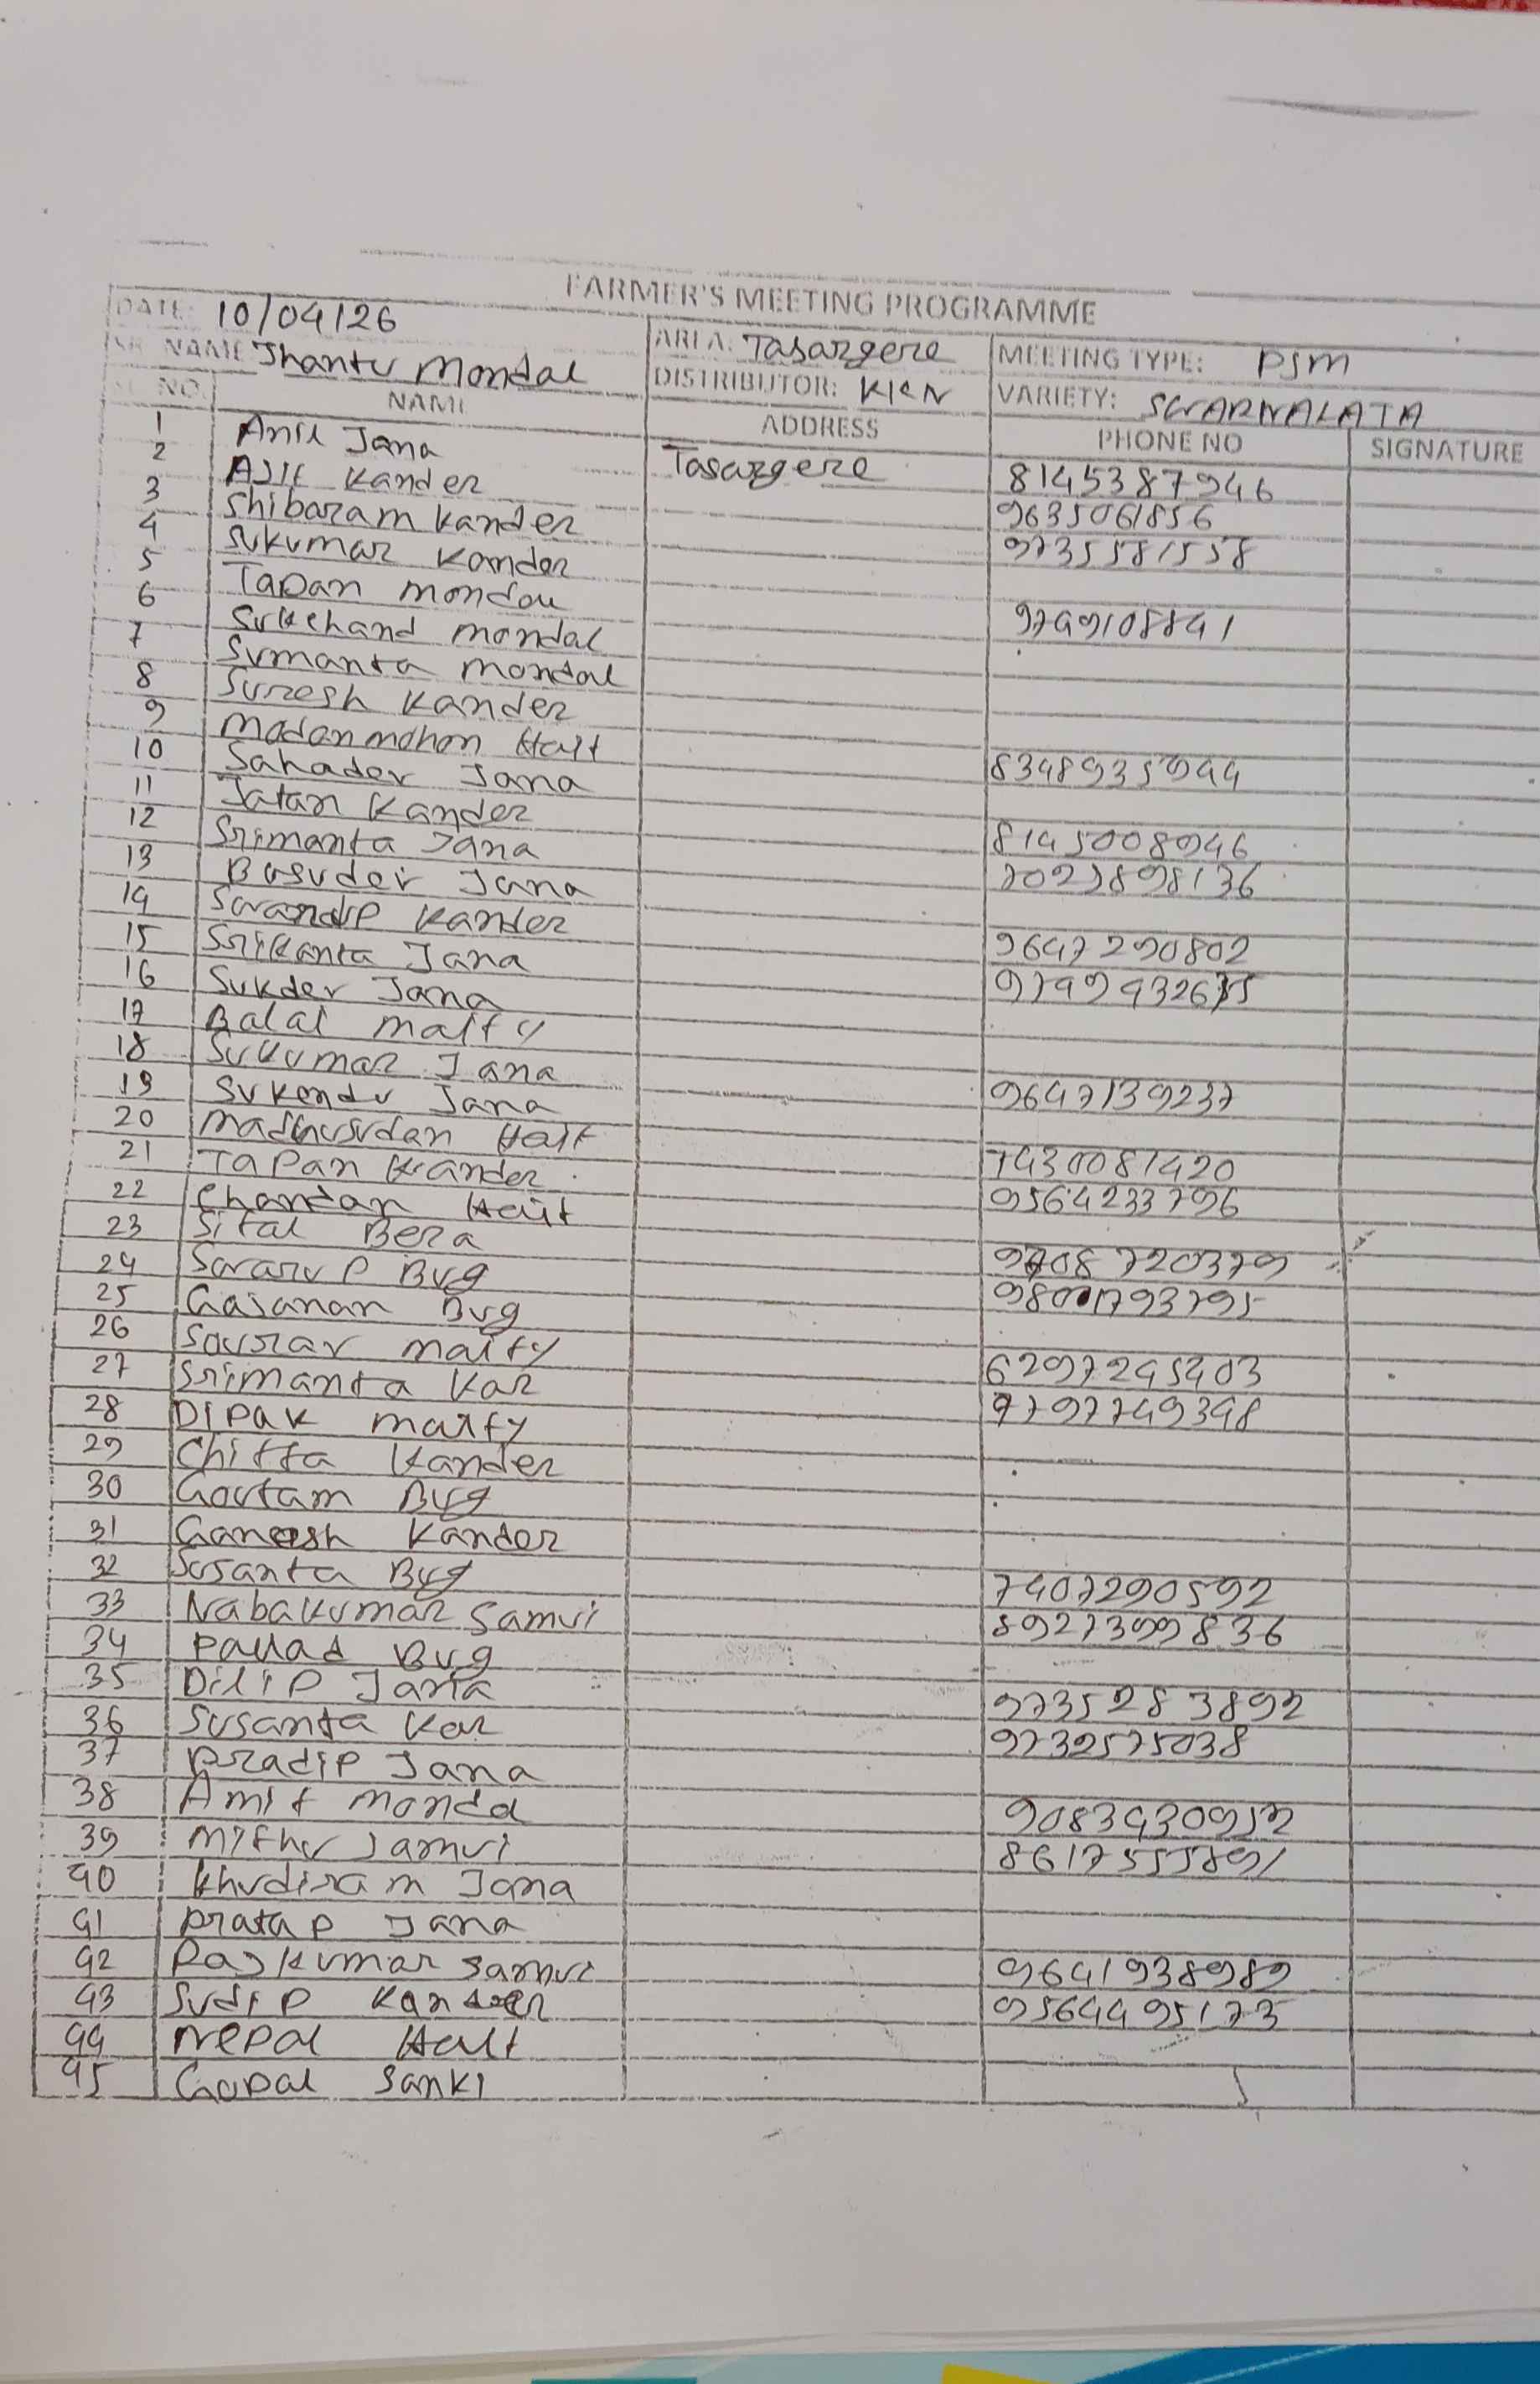 FARMER'S MEETING PROGRAMME
DATE: 10/04/26
NAME Jhantu Mondal AREA: Tasargere MEETING TYPE: PSM
DISTRIBUTOR: KKN VARIETY: SWARNALATA
SL NO. NAME ADDRESS PHONE NO SIGNATURE
1 Anil Jana Tasargere 8145387946
2 Ajit Kander 9635061856
3 Shibaram Kander 9735581558
4 Sukumar Kander
5 Tapan Mondal 9749108841
6 Sukchand Mondal
7 Sumanta Mondal
8 Suresh Kander
9 Madanmohon Hait 8348935944
10 Sahadev Jana
11 Jatan Kander 8145008946
12 Srimanta Jana
13 Basudev Jana
14 Kander 9647290802
15 Srikanta Jana
16 Sukdev Jana
17 Balai Maity
18 Sukumar Jana 9647139237
19 Sukendu Jana
20 Madhusudan Hait 7430081420
21 Tapan Kander 9564233796
22 Chandan Hait
23 Sital Bera
24 Bug
25 Gajanan Bug
26 Sourav Maity 6297245403
27 Srimanta Kar 9797749348
28 Dipak Maity
29 Chitta Kander
30 Goutam Bug
31 Ganesh Kander
32 Susanta Bug 7407290592
33 Nabakumar Samui 8927399836
34 Bug
35 Dilip Jana 9735283892
36 Susanta Kar 9732575038
37 Pradip Jana
38 Amit Mondal
39 Mithu Samui 8617555891
40 Khudiram Jana
41 Pratap Jana
42 Rajkumar Samui 9641938989
43 Sudip Kander 9564495173
44 Nepal Hait
45 Gopal Sanki